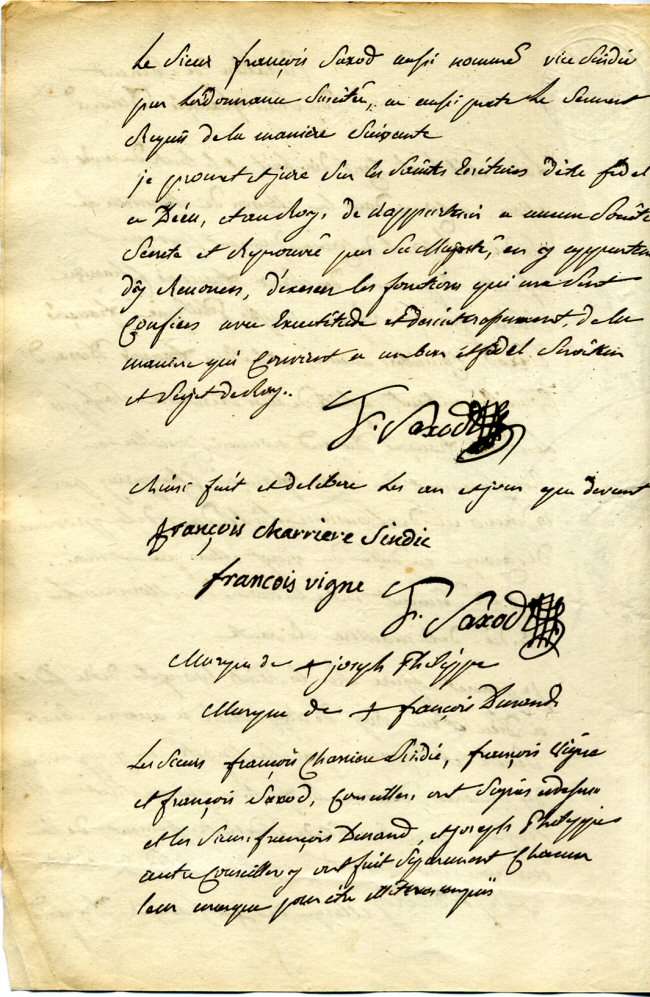 Le Sieur françois Saxod aussi nommé vice Sindic
par Lordonnance Susditte, a aussi prete Le Serment
Requis de la maniere Suivante
je promet et jure Sur les Saints Ecritures d'etre fidel
a Dieu, et au Roy, de n'appartenir a aucune Société
Secrete et Reprouvée par Sa Majesté, en y appartena
d'y Renoncer, d'exercer les fonctions qui me Sont
Confiées avec Exactitude et desinteressement, de la
maniere qui Convient a un bon et fidel Serviteur
et Sujet de Roy..
F. Saxod
Ainsi fait et delibere Les an et jour que devant
françois charriere Sindic
francois vigne
F. Saxod
Marque de + joseph Philippe
Marque de + françois Durand
Les Sieurs françois Charriere Sindic, françois Vigne
et françois Saxod, Conseiller, ont Signés cy dessus
et les Sieurs françois Durand, et joseph Philippe
autre Conseiller y ont fait Separement Chacun
leur marque pour etre illiteres